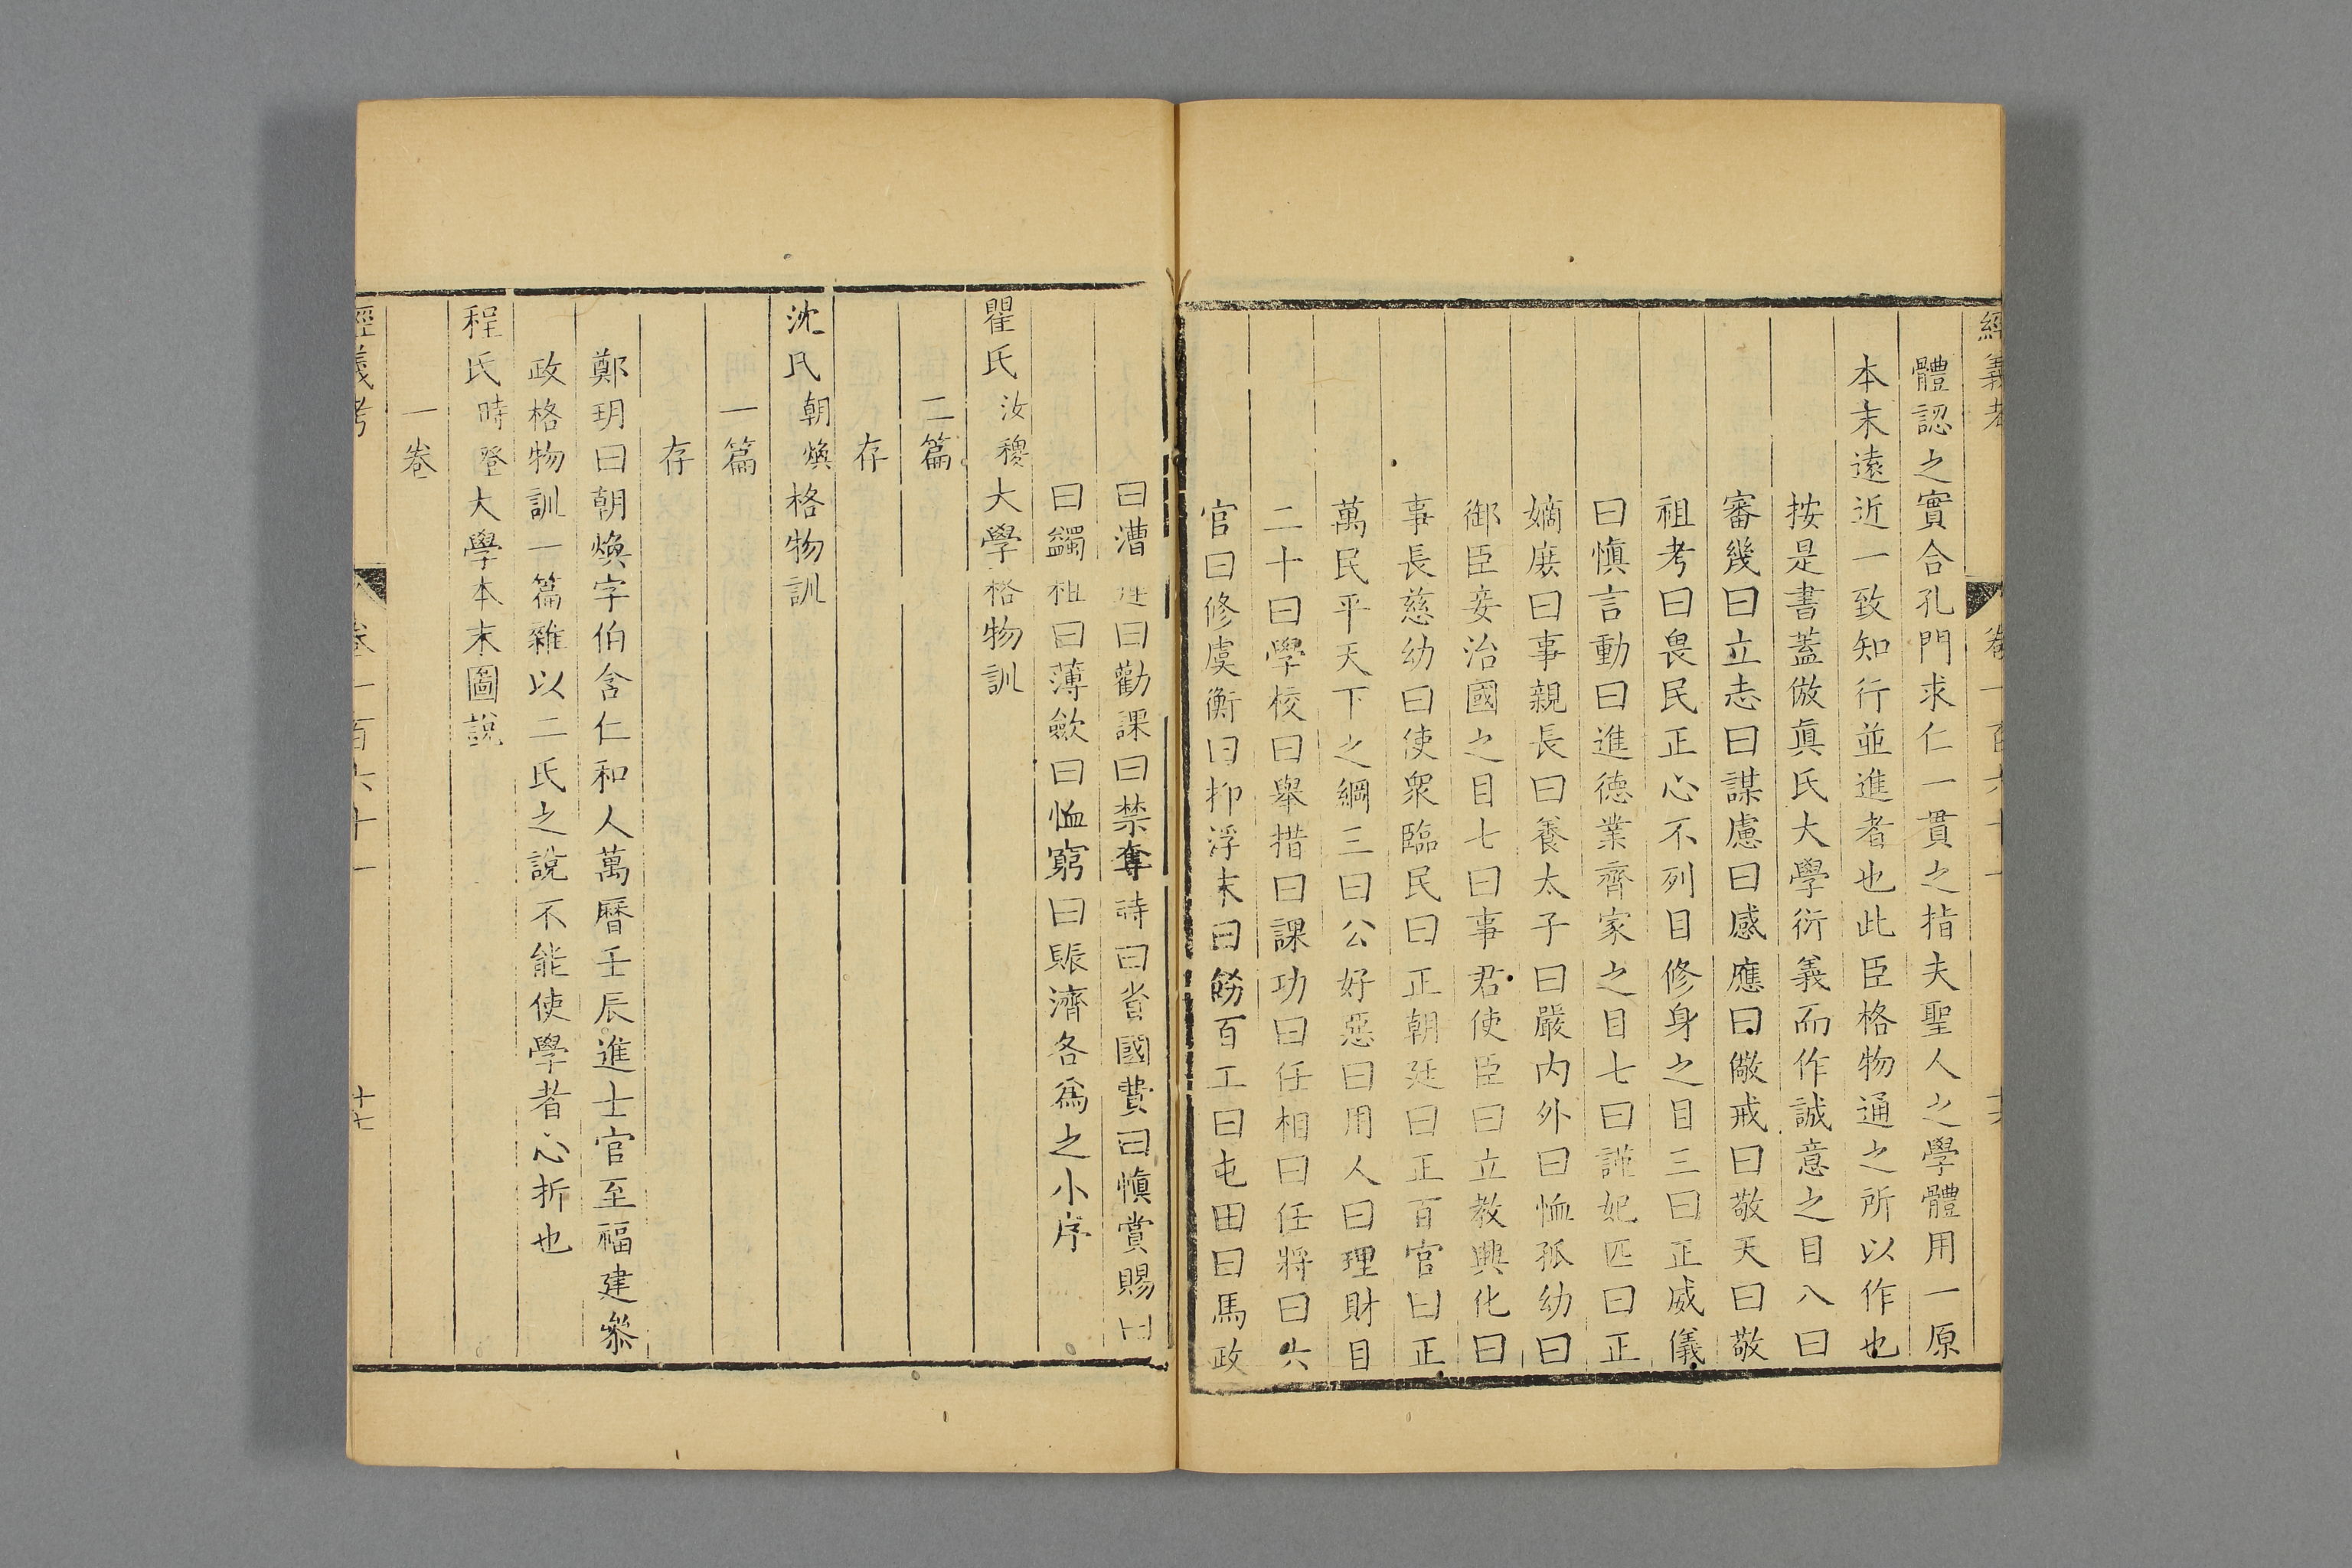 經義考 卷一百六十一 十六
體認之實合孔門求仁一貫之指夫聖人之學體用一原
本末遠近一致知行並進者也此臣格物通之所以作也
按是書蓋倣眞氏大學衍義而作誠意之目八曰
審幾曰立志曰謀慮曰感應曰儆戒曰敬天曰敬
祖考曰畏民正心不列目修身之目三曰正威儀
曰愼言動曰進德業齊家之目七曰謹妃匹曰正
嫡庶曰事親長曰養太子曰嚴内外曰恤孤幼曰
御臣妾治國之目七曰事君使臣曰立教興化曰
事長慈幼曰使衆臨民曰正朝廷曰正百官曰正
萬民平天下之綱三曰公好惡曰用人曰理財目
二十曰學校曰舉措曰課功曰任相曰任將曰六
官曰修虞衡曰抑浮末曰飭百工曰屯田曰馬政
曰漕運曰勸課曰禁奪時曰省國費曰愼賞賜曰
曰蠲租曰薄歛曰恤窮曰賑濟各爲之小序
瞿氏汝稷大學格物訓
二篇
存
沈氏朝煥格物訓
一篇
存
鄭玥曰朝煥字伯含仁和人萬曆壬辰進士官至福建叅
政格物訓一篇雜以二氏之說不能使學者心折也
程氏時登大學本末圖說
一卷
經義考 卷一百六十一 十七